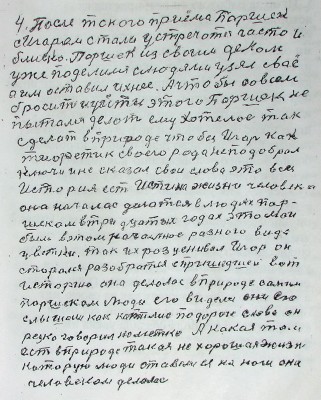 4. После такого приёма Паршек
с Игарям стали устречатся часто и
близко. Паршек из своим делом
уже поделился с людями узял своё
а им оставил ихнее. А чтобы совсем
бросить идти этого Паршек не
пытался делать ему хотелос так
сделат в природе чтобы Игар как
теоретик своего рода не подобрал
ключи и не сказал свои слова это всё
история ест Истина жизни человека
она началас делатся в людях пар-
шиком в тридцатых годах это май
был в том началное разного вида
цветки. так их розценивал Игар он
старался разобратся с пришедшей вот
история она делалас в природе самим
паршиком Люди его видели они его
слышали как катилис по дороге слова он
редко говорил но метко А какая там
ест в природе такая не хорошая жизн
которую люди оставили на ноги она
человеком делалас